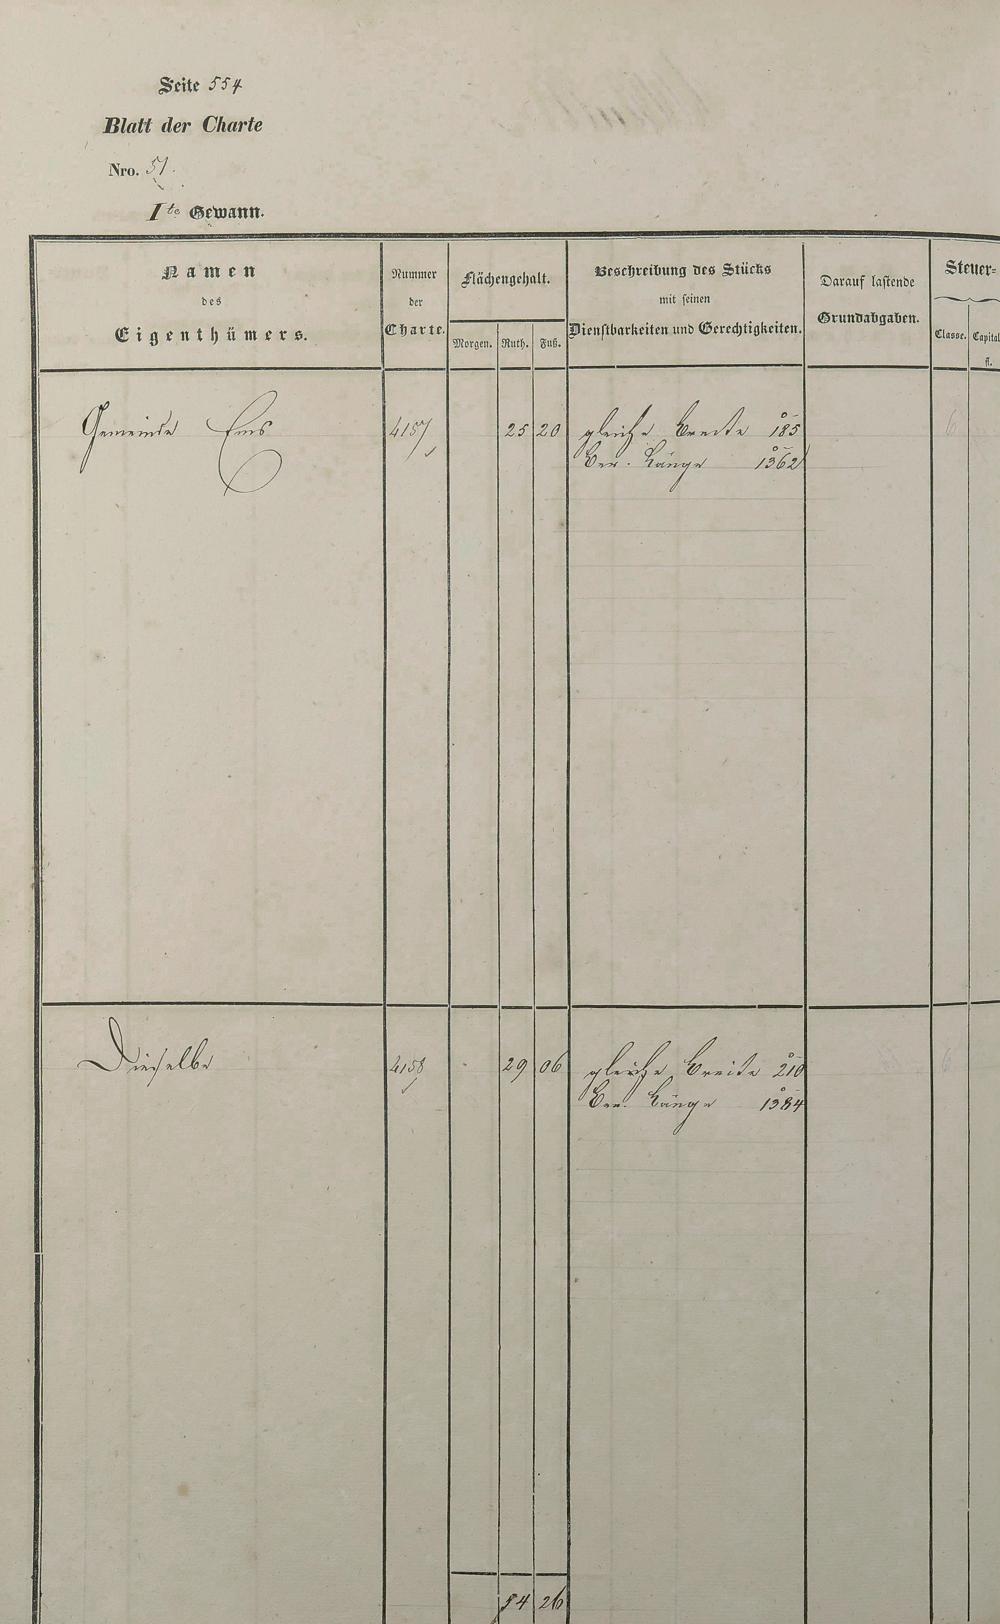 Seite 554
Blatt der Charte
Nro. 51.
Ite Gewann.
Namen
des
Eigenthümers.
Nummer
der
Charte.
Flächengehalt.
Morgen. Ruth. Fuß.
Beschreibung des Stücks
mit seinen
Dienstbarkeiten und Gerechtigkeiten.
Darauf lastende
Grundabgaben.
Steuer-
Classe. Capital
fl.
Gemeinde Ems 4157 25 20 gleiche Breite 185 6
Ber. Länge 1362
Dieselbe 4158 29 06 gleiche Breite 210 6
Ber. Länge 1384
54 26